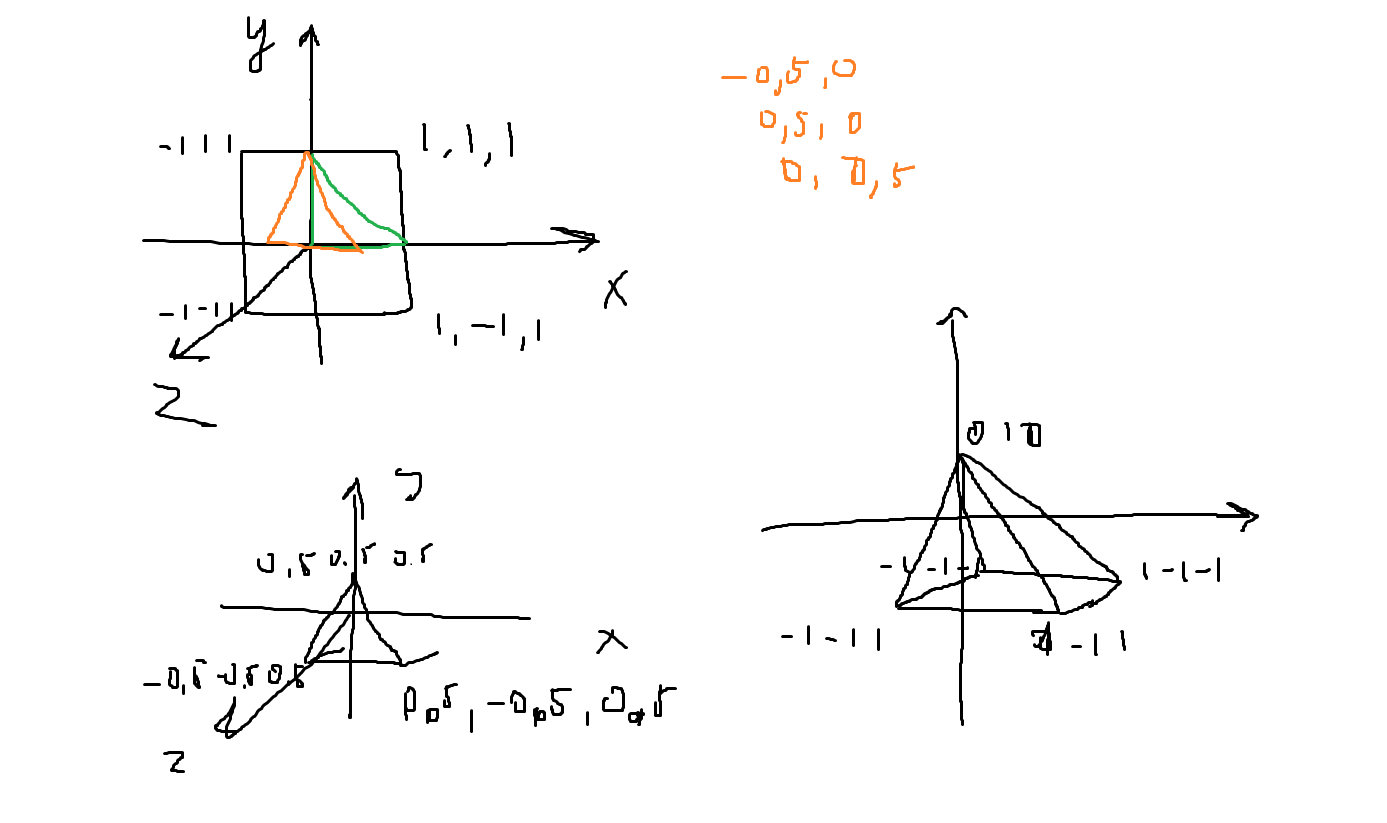 y
-1 1 1
1, 1, 1
-1 -1 1
1, -1, 1
x
z
-0,5,0
0,5, 0
0, 0,5
0,5 0.5 0.5
x
-0,5 -0.5 0.5
0,5, -0,5, 0,5
z
0 1 0
-1 -1 -1
1 -1 -1
-1 -1 1
1 -1 1